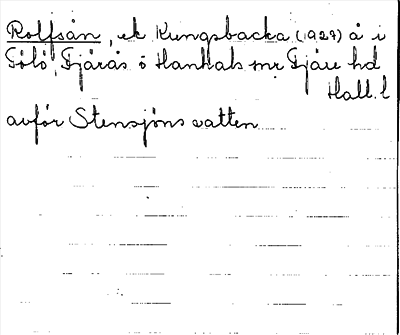 Rolfsån, ek Kungsbacka (1929) å i
Tölö, Fjärås o Hanhals snr Fjäre hd
Hall. l
avför Stensjöns vatten